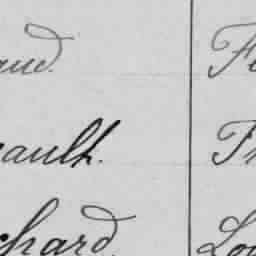 aud. Fe
eault. Fr
chard. Lou